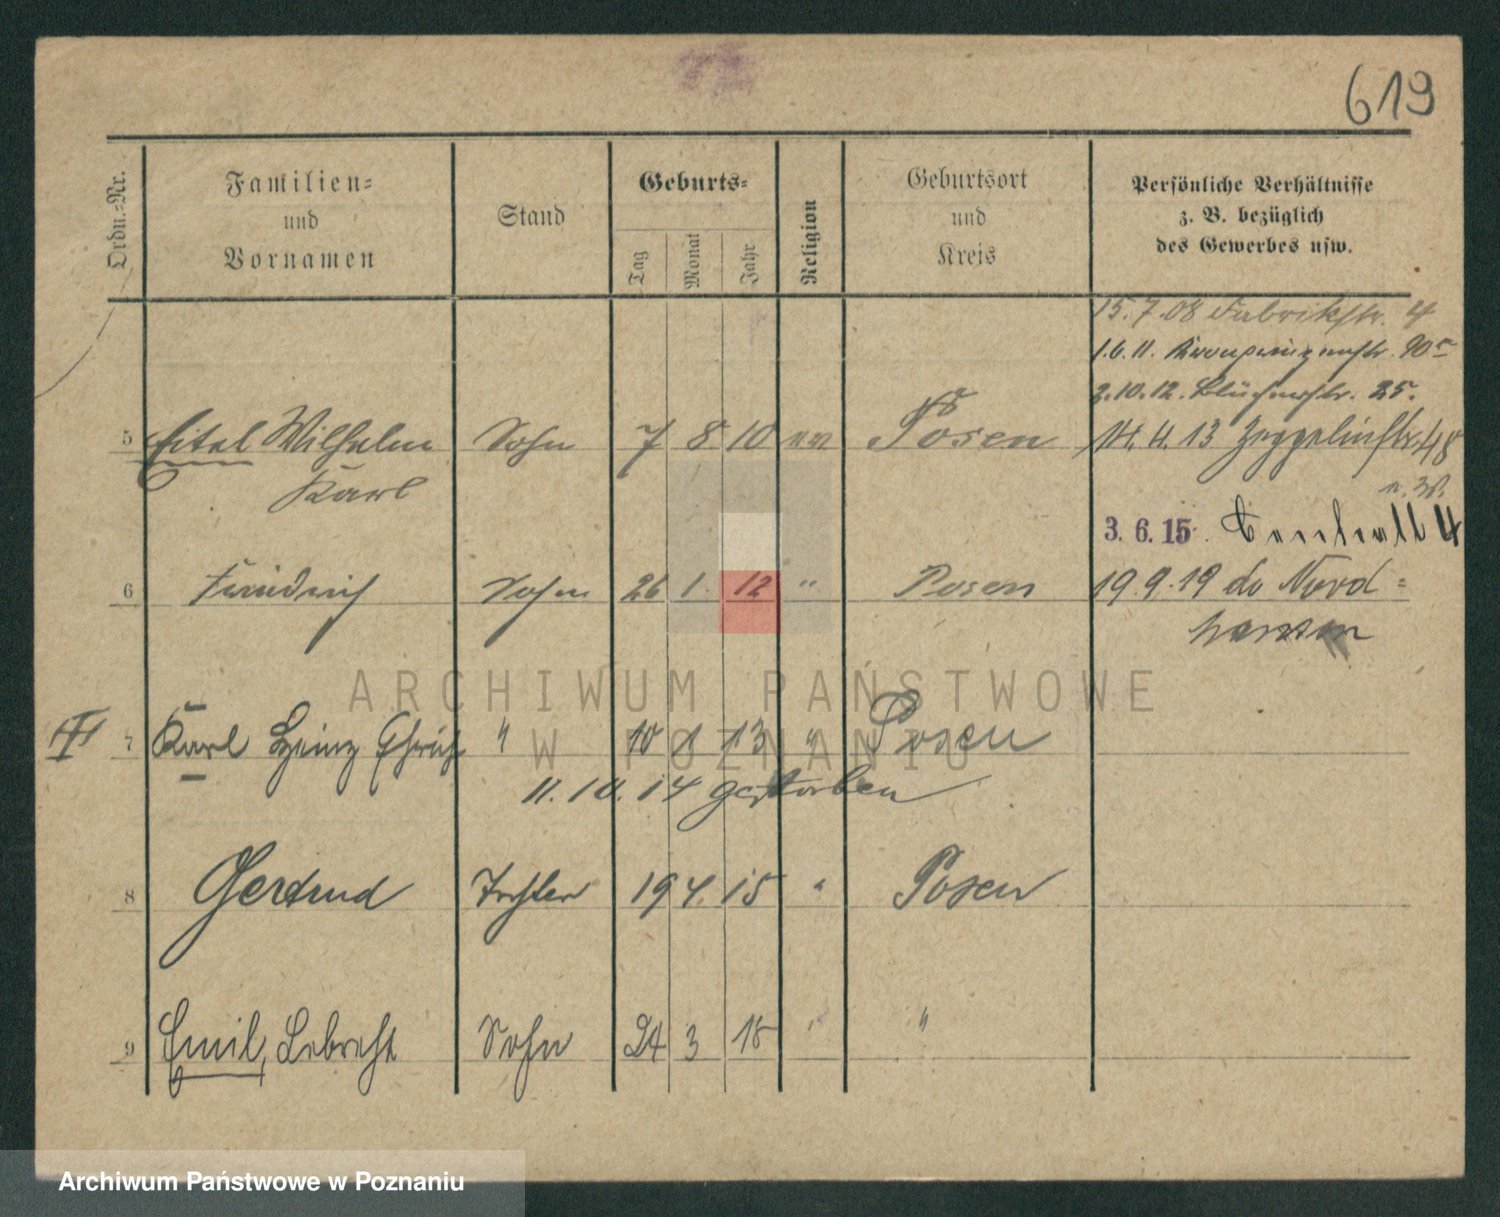 619
Ordn.=Nr.
Familien=
und
Vornamen
Stand
Geburts=
Tag
Monat
Jahr
Religion
Geburtsort
und
Kreis
Persönliche Verhältnisse
z. B. bezüglich
des Gewerbes usw.
15.7.08 Fabrikstr. 4
1.6.11. Kronprinzenstr. 90
2.10.12. Blücherstr. 25.
5 Eitel Wilhelm Sohn 7 8 10 ev Posen 14.4.13 Zeppelinstr. 48
Karl
3.6.15. 4
6 Friedrich Sohn 26 1. 12 " Posen 19.9.19 Nord=
hausen
7 Karl Heinz " 10 1 13 " Posen
11.10.14 gestorben
8 Gertrud Tochter 19 4. 15 " Posen
9 Emil, Lebrecht Sohn 24 3 18 " "
ARCHIWUM PAŃSTWOWE
W POZNANIU
Archiwum Państwowe w Poznaniu